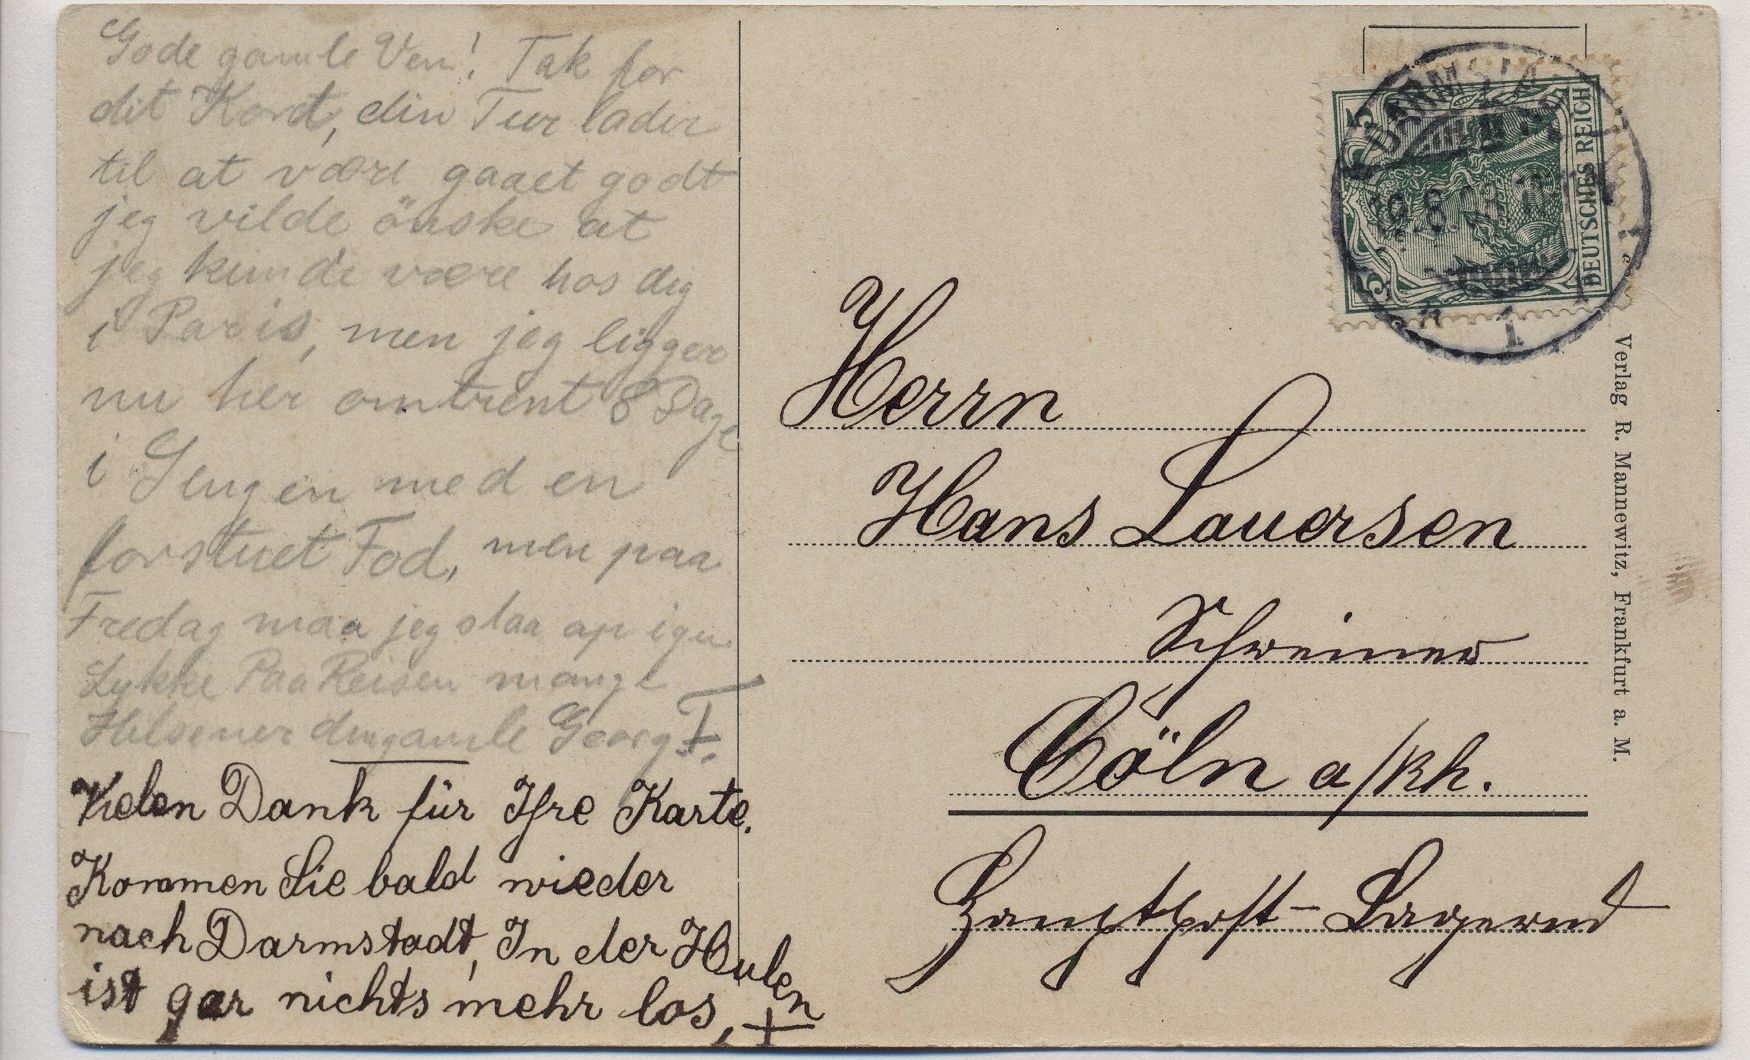 Gode gamle Ven! Tak for
dit Kort, din Tur lader
til at være gaaet godt
jeg vilde önske at
jeg kunde være hos dig
i Paris, men jeg ligger
nu her omtrent 8 Dage
i Sengen med en
forstuet Fod, men paa
Fredag maa jeg staa op igen
Lykke Paa Reisen mange
Hilsener din gamle Georg
Vielen Dank für Ihre Karte.
Kommen Sie bald wieder
nach Darmstadt, In der Hulen
ist gar nichts mehr los,
DEUTSCHES REICH
5 5
DARMSTADT
1
Herrn
Hans Lauersen
Schreiner
Cöln a/Rh.
Hauptpost-Lagernd
Verlag R. Mannewitz, Frankfurt a. M.